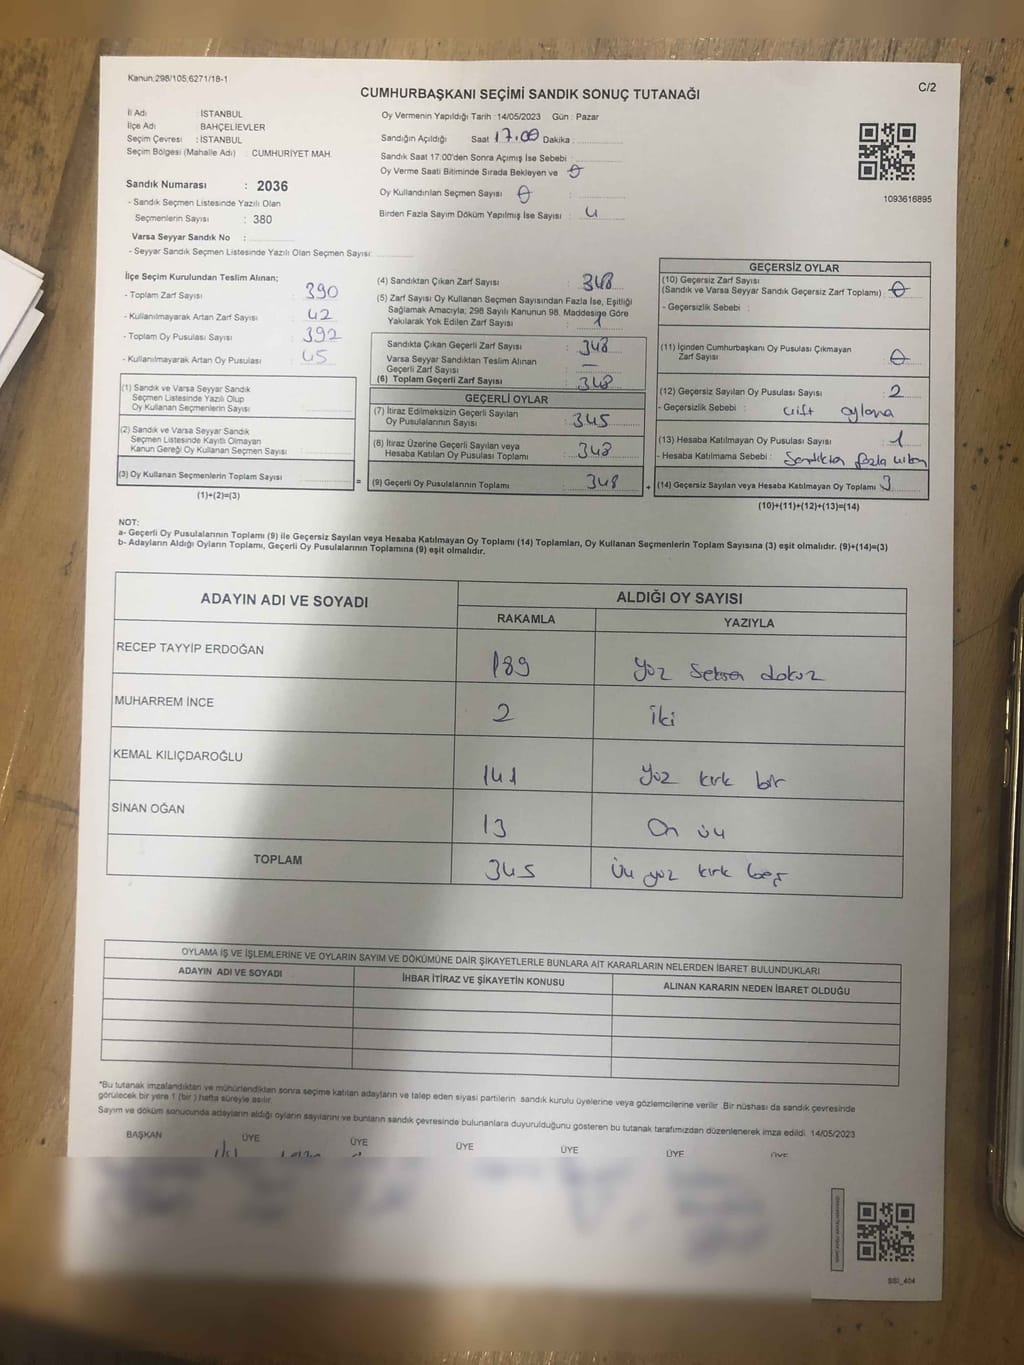 Kanun;298/105;6271/18-1
C/2
CUMHURBAŞKANI SEÇİMİ SANDIK SONUÇ TUTANAĞI
İl Adı : İSTANBUL
İlçe Adı : BAHÇELİEVLER
Seçim Çevresi : İSTANBUL
Seçim Bölgesi (Mahalle Adı) : CUMHURİYET MAH.
Sandık Numarası : 2036
- Sandık Seçmen Listesinde Yazılı Olan
Seçmenlerin Sayısı : 380
Varsa Seyyar Sandık No :
- Seyyar Sandık Seçmen Listesinde Yazılı Olan Seçmen Sayısı:
Oy Vermenin Yapıldığı Tarih :14/05/2023 Gün : Pazar
Sandığın Açıldığı Saat 17.00 Dakika :
Sandık Saat 17:00'den Sonra Açımış İse Sebebi :
Oy Verme Saati Bitiminde Sırada Bekleyen ve 0
Oy Kullandırılan Seçmen Sayısı : 0
Birden Fazla Sayım Döküm Yapılmış İse Sayısı : 4
1093616895
İlçe Seçim Kurulundan Teslim Alınan;
- Toplam Zarf Sayısı : 390
- Kullanılmayarak Artan Zarf Sayısı : 42
- Toplam Oy Pusulası Sayısı : 392
- Kullanılmayarak Artan Oy Pusulası : 45
(1) Sandık ve Varsa Seyyar Sandık
Seçmen Listesinde Yazılı Olup
Oy Kullanan Seçmenlerin Sayısı :
(2) Sandık ve Varsa Seyyar Sandık
Seçmen Listesinde Kayıtlı Olmayan
Kanun Gereği Oy Kullanan Seçmen Sayısı :
(3) Oy Kullanan Seçmenlerin Toplam Sayısı :
(1)+(2)=(3)
(4) Sandıktan Çıkan Zarf Sayısı : 348
(5) Zarf Sayısı Oy Kullanan Seçmen Sayısından Fazla İse, Eşitliği
Sağlamak Amacıyla; 298 Sayılı Kanunun 98. Maddesine Göre
Yakılarak Yok Edilen Zarf Sayısı : 1
Sandıkta Çıkan Geçerli Zarf Sayısı : 348
Varsa Seyyar Sandıktan Teslim Alınan
Geçerli Zarf Sayısı : —
(6) Toplam Geçerli Zarf Sayısı : 348
GEÇERLİ OYLAR
(7) İtiraz Edilmeksizin Geçerli Sayılan
Oy Pusulalarının Sayısı : 345
(8) İtiraz Üzerine Geçerli Sayılan veya
Hesaba Katılan Oy Pusulası Toplamı : 348
= (9) Geçerli Oy Pusulalarının Toplamı : 348
GEÇERSİZ OYLAR
(10) Geçersiz Zarf Sayısı
(Sandık ve Varsa Seyyar Sandık Geçersiz Zarf Toplamı) : 0
- Geçersizlik Sebebi :
(11) İçinden Cumhurbaşkanı Oy Pusulası Çıkmayan
Zarf Sayısı : 0
(12) Geçersiz Sayılan Oy Pusulası Sayısı : 2
- Geçersizlik Sebebi : çift oylama
(13) Hesaba Katılmayan Oy Pusulası Sayısı : 1
- Hesaba Katılmama Sebebi : Sandıktan fazla çıkan
+ (14) Geçersiz Sayılan veya Hesaba Katılmayan Oy Toplamı : 3
(10)+(11)+(12)+(13)=(14)
NOT:
a- Geçerli Oy Pusulalarının Toplamı (9) ile Geçersiz Sayılan veya Hesaba Katılmayan Oy Toplamı (14) Toplamları, Oy Kullanan Seçmenlerin Toplam Sayısına (3) eşit olmalıdır. (9)+(14)=(3)
b- Adayların Aldığı Oyların Toplamı, Geçerli Oy Pusulalarının Toplamına (9) eşit olmalıdır.
ADAYIN ADI VE SOYADI ALDIĞI OY SAYISI
RAKAMLA YAZIYLA
RECEP TAYYİP ERDOĞAN 189 Yüz Seksen dokuz
MUHARREM İNCE 2 İki
KEMAL KILIÇDAROĞLU 141 Yüz kırk bir
SİNAN OĞAN 13 On üç
TOPLAM 345 Üç yüz kırk beş
OYLAMA İŞ VE İŞLEMLERİNE VE OYLARIN SAYIM VE DÖKÜMÜNE DAİR ŞİKAYETLERLE BUNLARA AİT KARARLARIN NELERDEN İBARET BULUNDUKLARI
ADAYIN ADI VE SOYADI İHBAR İTİRAZ VE ŞİKAYETİN KONUSU ALINAN KARARIN NEDEN İBARET OLDUĞU
*Bu tutanak imzalandıktan ve mühürlendikten sonra seçime katılan adayların ve talep eden siyasi partilerin sandık kurulu üyelerine veya gözlemcilerine verilir. Bir nüshası da sandık çevresinde
görülecek bir yere 1 (bir) hafta süreyle asılır.
Sayım ve döküm sonucunda adayların aldığı oyların sayılarını ve bunların sandık çevresinde bulunanlara duyurulduğunu gösteren bu tutanak tarafımızdan düzenlenerek imza edildi. 14/05/2023
BAŞKAN ÜYE ÜYE ÜYE ÜYE ÜYE ÜYE
SSI_404